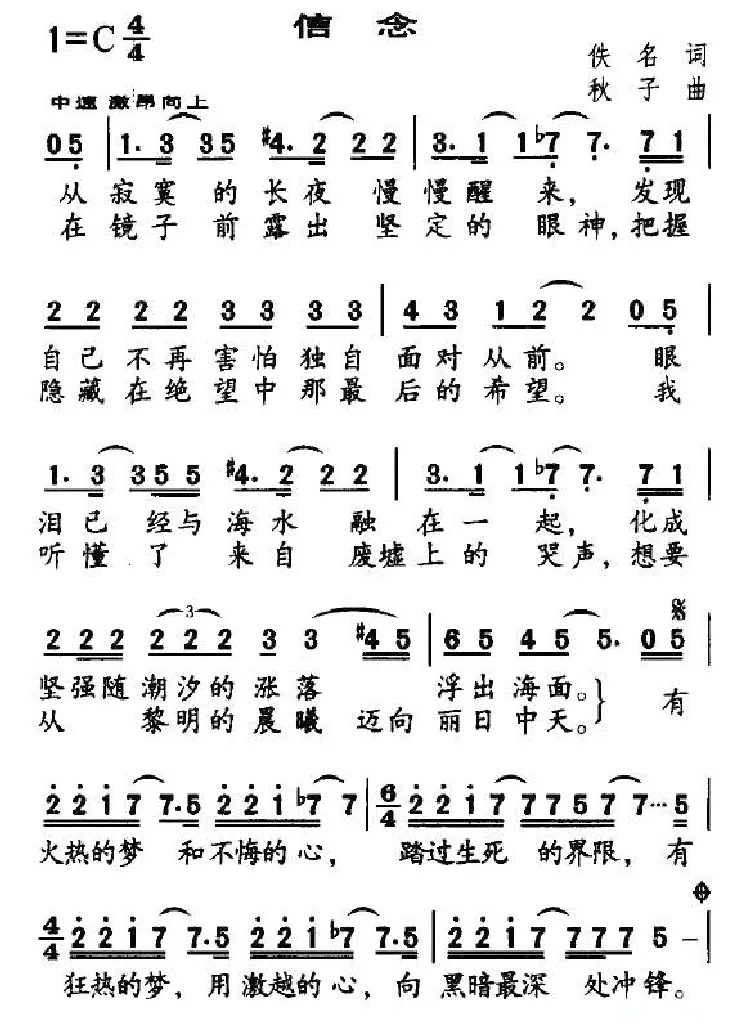 信 念
1=C 4/4
佚 名 词
秋 子 曲
中速 激昂向上
05 | 1. 3 35 #4. 2 22 | 3. 1 1♭7 7. 71 |
从寂寞的长夜慢慢醒来，发现
在镜子前露出坚定的眼神，把握
22 22 33 33 | 43 12 2 05 |
自己不再害怕独自面对从前。眼
隐藏在绝望中那最后的希望。我
1. 3 355 #4. 2 22 | 3. 1 1♭7 7. 71 |
泪已经与海水融在一起，化成
听懂了来自废墟上的哭声，想要
222 222 3 3 #45 | 65 45 5. 05 |
坚强随潮汐的涨落浮出海面。
从黎明的晨曦迈向丽日中天。} 有
2217 7.5 221♭7 7 | 6/4 2217 7757 7···5 |
火热的梦 和不悔的心， 踏过生死的界限，有
4/4 2217 7.5 221♭7 7.5 | 2217 777 5 – |
狂热的梦，用激越的心，向黑暗最深处冲锋。